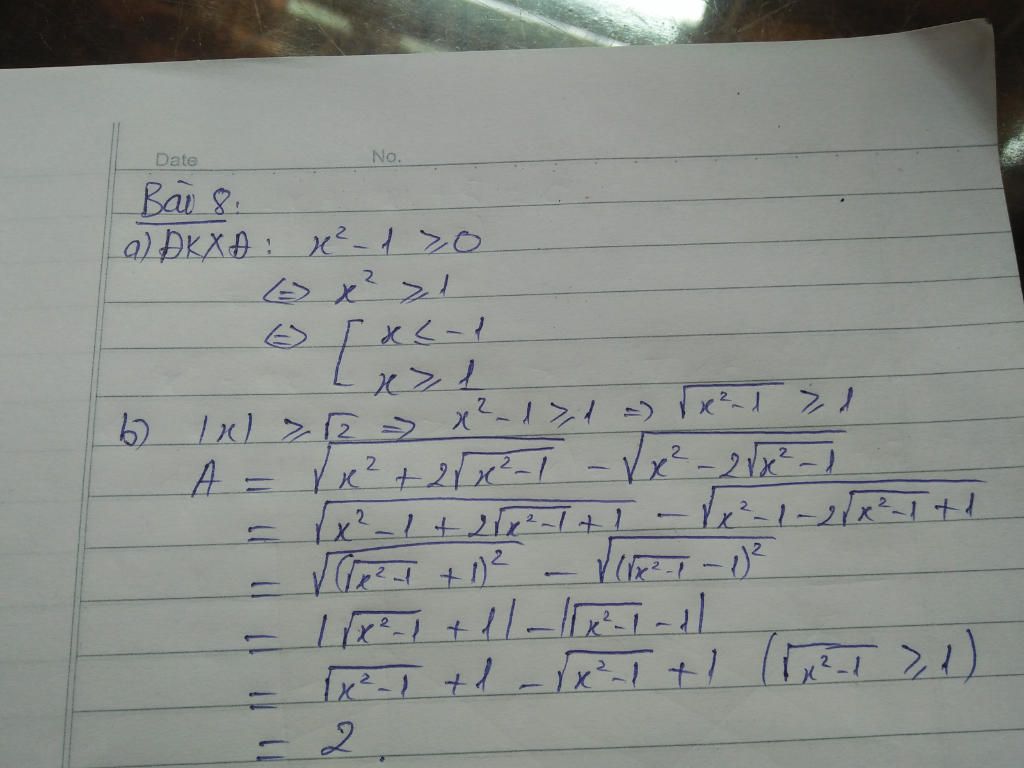 Date No.
Bài 8:
a) ĐKXĐ: x² - 1 ≥ 0
⇔ x² ≥ 1
⇔ [ x ≤ -1
x ≥ 1
b) |x| ≥ √2 ⇒ x² - 1 ≥ 1 ⇒ √(x²-1) ≥ 1
A = √(x² + 2√(x²-1)) - √(x² - 2√(x²-1))
= √(x² - 1 + 2√(x²-1) + 1) - √(x² - 1 - 2√(x²-1) + 1)
= √((√(x²-1) + 1)²) - √((√(x²-1) - 1)²)
= |√(x²-1) + 1| - |√(x²-1) - 1|
= √(x²-1) + 1 - √(x²-1) + 1 (√(x²-1) ≥ 1)
= 2.